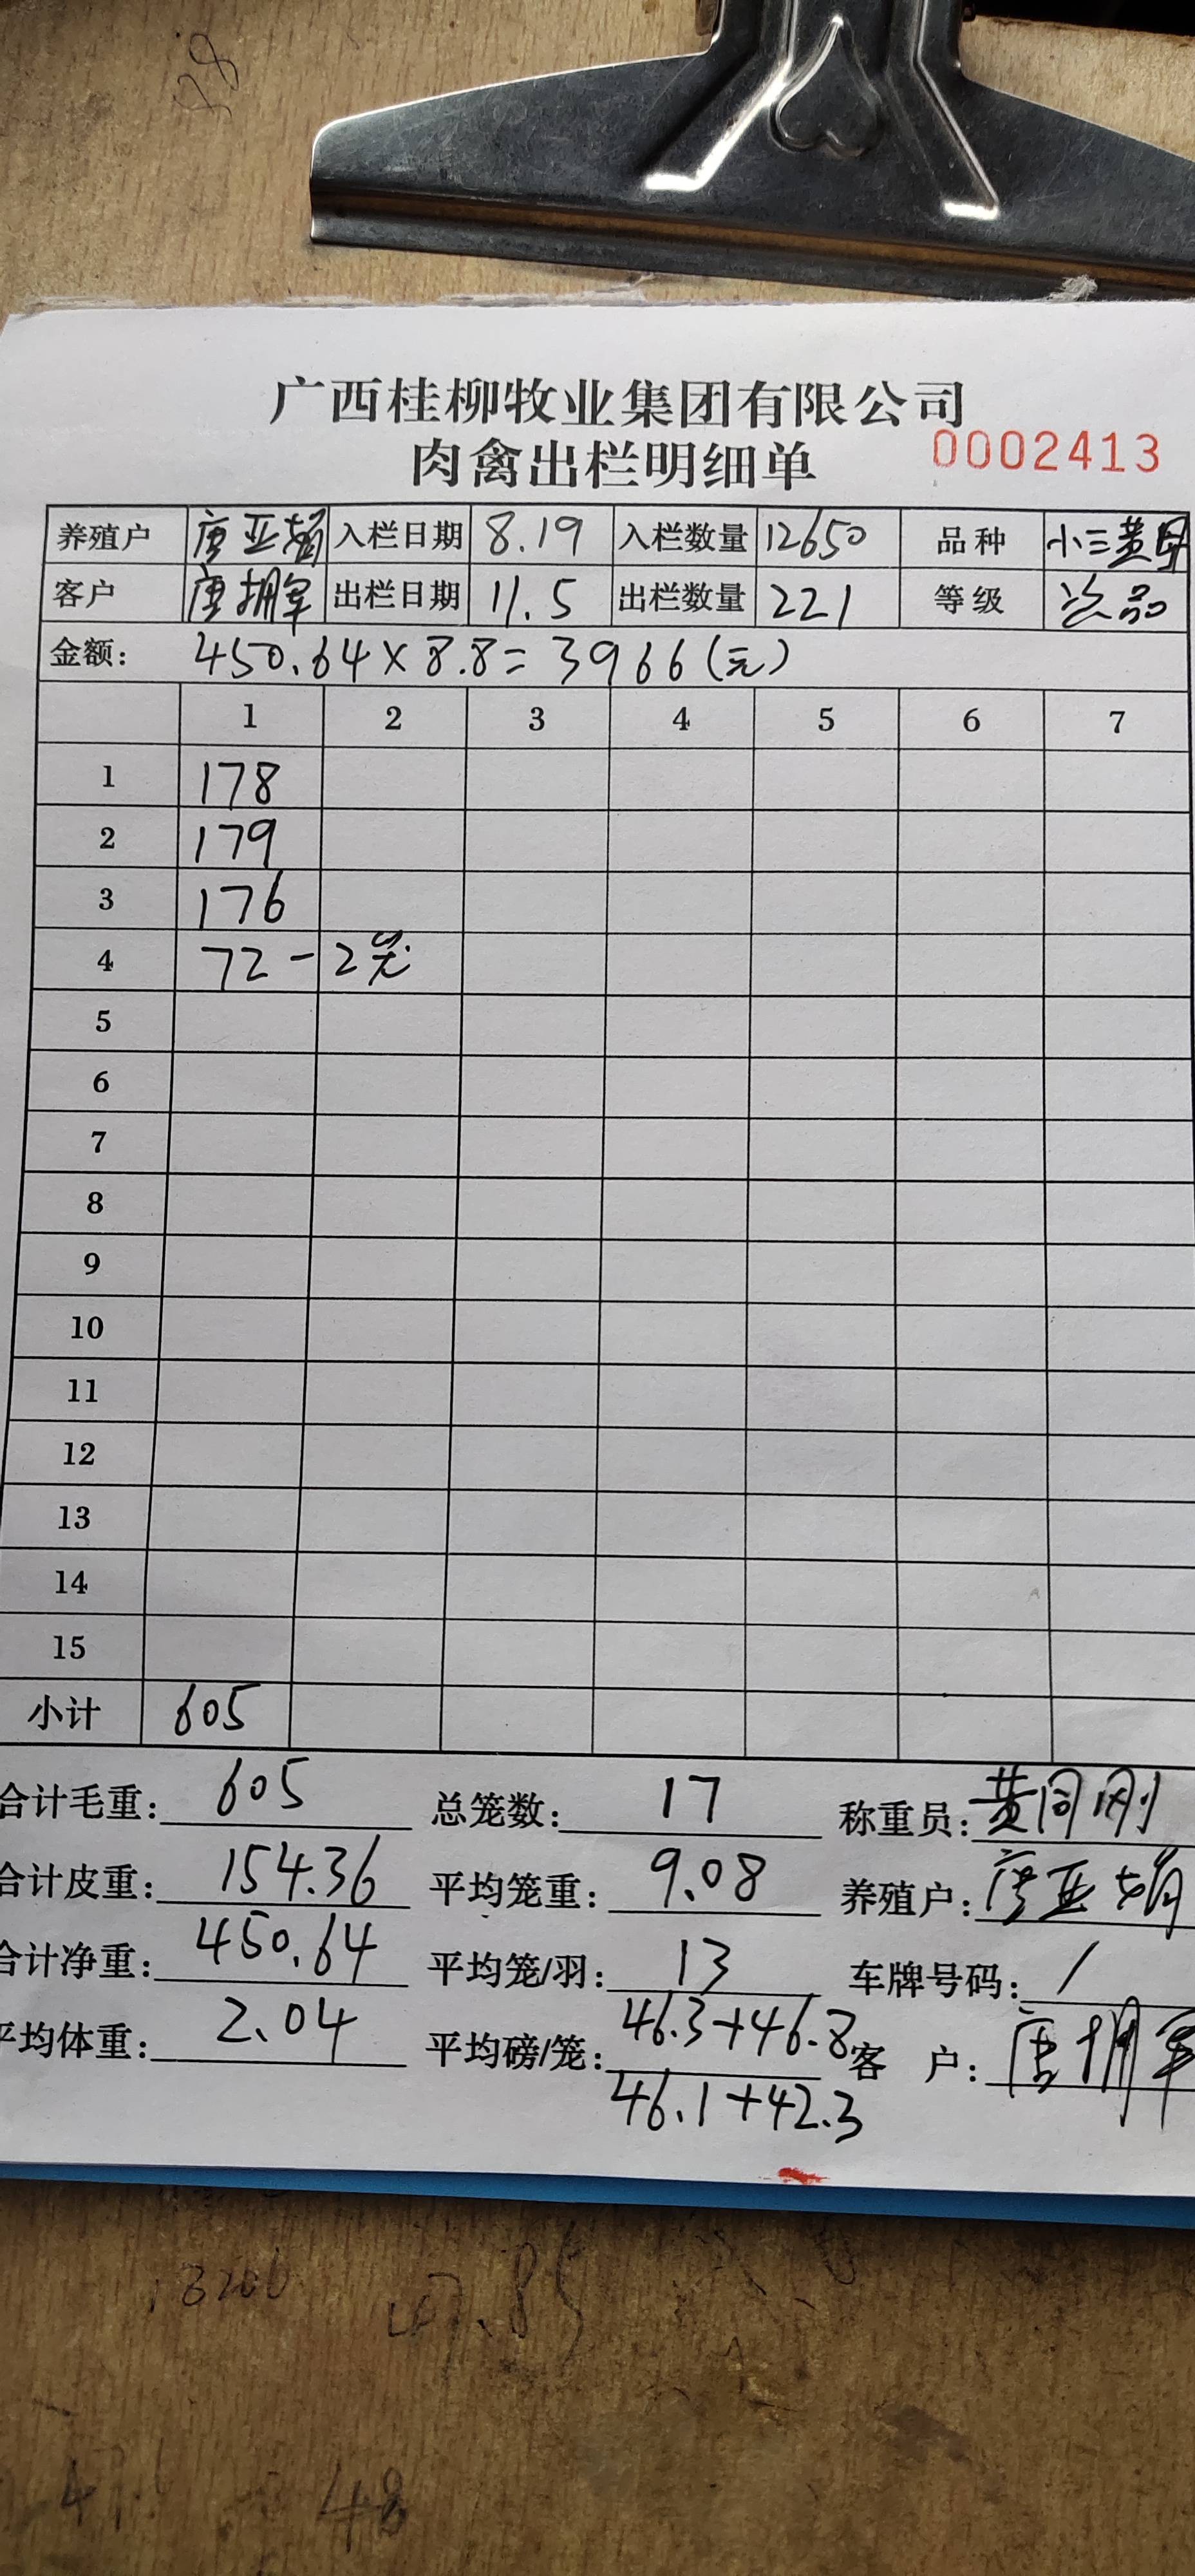 广西桂柳牧业集团有限公司
肉禽出栏明细单 0002413
养殖户 唐亚娟 入栏日期 8.19 入栏数量 12650 品种 小三黄母
客户 唐拥军 出栏日期 11.5 出栏数量 221 等级 次品
金额: 450.64×8.8=3966(元)
1 2 3 4 5 6 7
1 178
2 179
3 176
4 72-2笼
5
6
7
8
9
10
11
12
13
14
15
小计 605
合计毛重: 605 总笼数: 17 称重员: 黄同刚
合计皮重: 154.36 平均笼重: 9.08 养殖户: 唐亚娟
合计净重: 450.64 平均笼/羽: 13 车牌号码: /
平均体重: 2.04 平均磅/笼: 46.3+46.8 客 户: 唐拥军
46.1+42.3
48